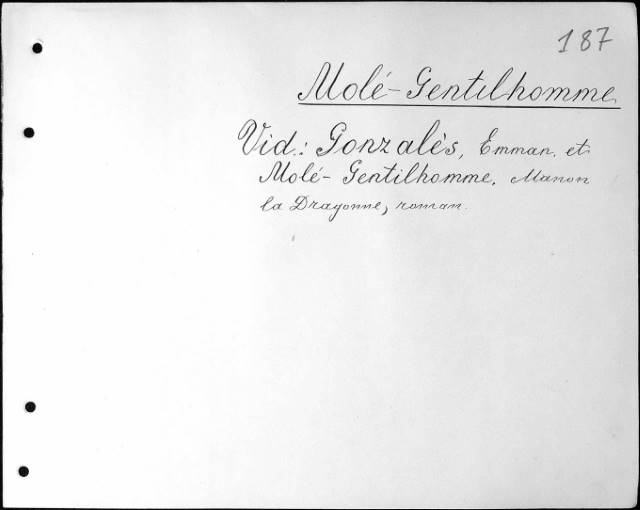 187
Molé-Gentilhomme.
Vid.: Gonzalès, Emman. et
Molé- Gentilhomme. Manon
la Dragonne, roman.